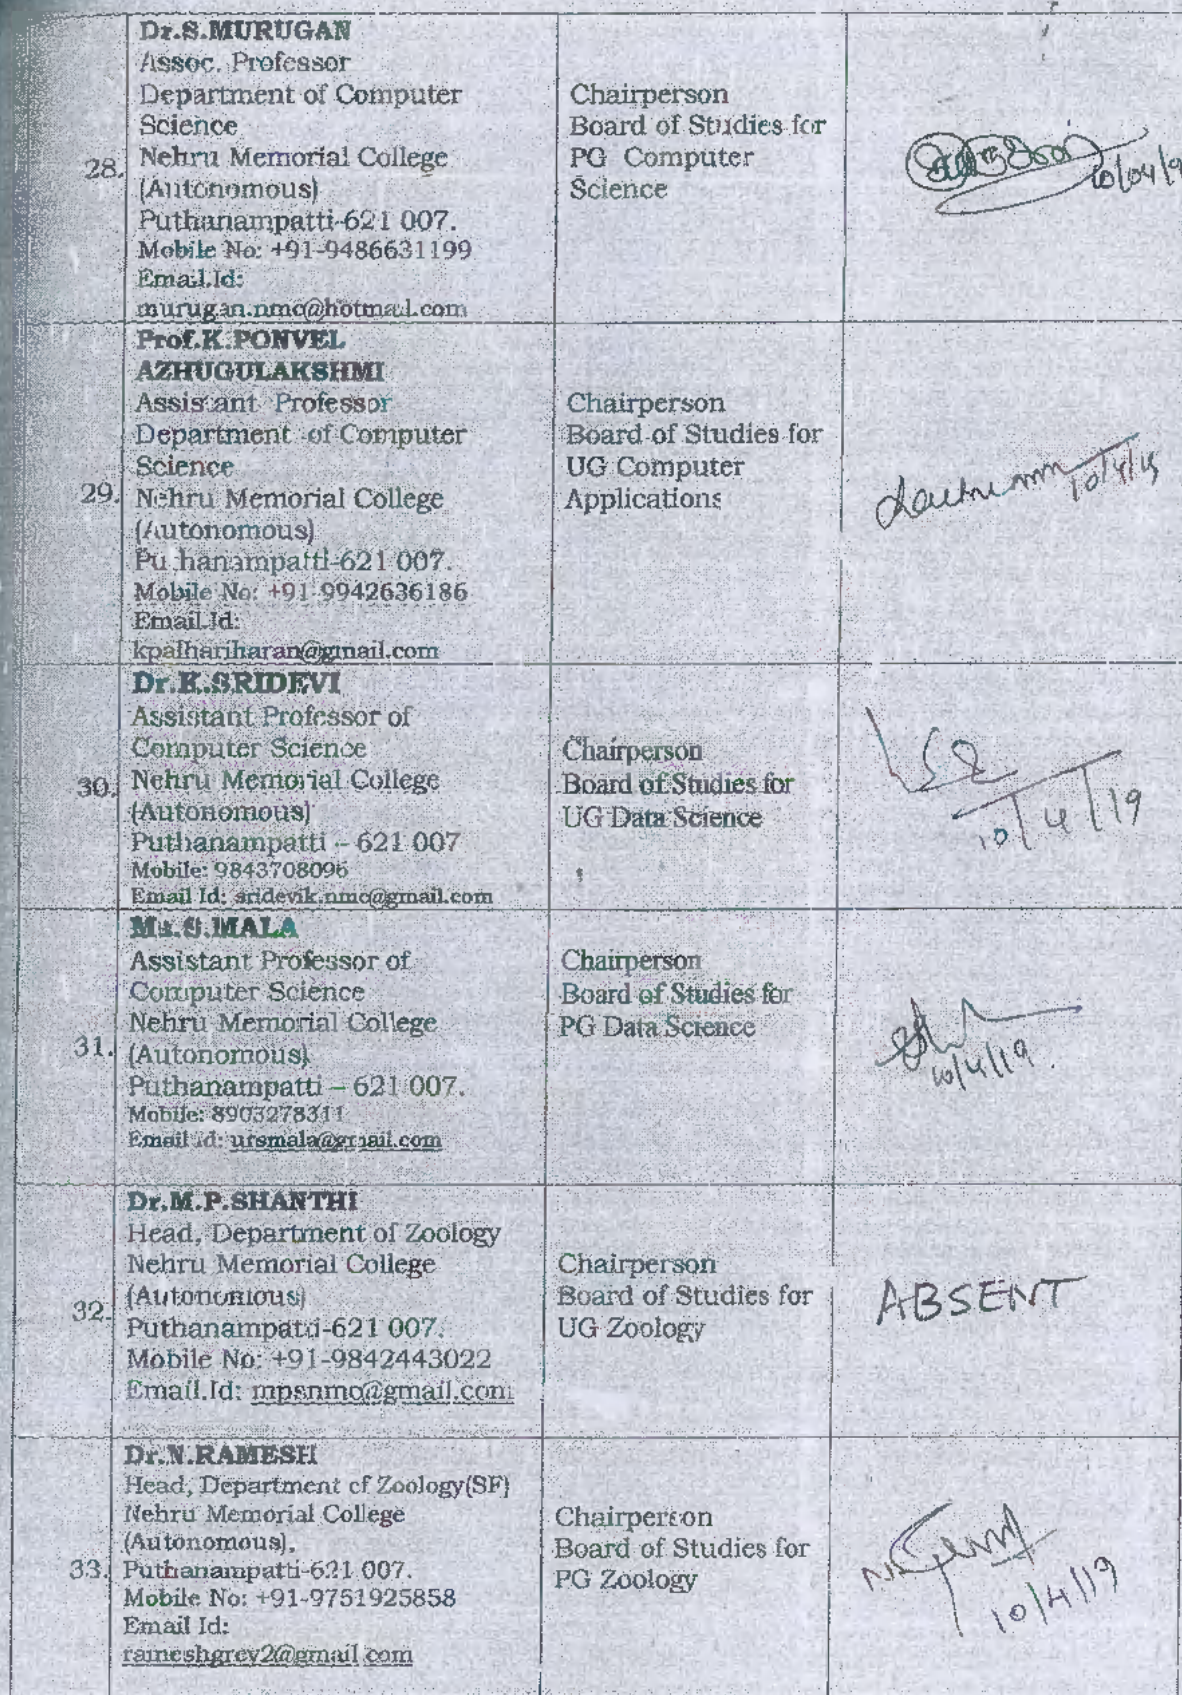 Dr.S.MURUGAN
Assoc. Professor
Department of Computer
Science
28.
Nehru Memorial College
(Autonomous)
Puthanampatti-621 007.
Mobile No: +91-9486631199
Email.Id:
murugan.nmc@hotmail.com
Chairperson
Board of Studies for
PG Computer
Science
10/04/19
Prof.K.PONVEL
AZHUGULAKSHMI
Assistant Professor
Department of Computer
Science
29.
Nehru Memorial College
(Autonomous)
Puthanampatti-621 007.
Mobile No: +91-9942636186
Email.Id:
kpalhariharan@gmail.com
Chairperson
Board of Studies for
UG Computer
Applications
10/4/19
Dr.K.SRIDEVI
Assistant Professor of
Computer Science
30.
Nehru Memorial College
(Autonomous)
Puthanampatti – 621 007
Mobile: 9843708096
Email Id: sridevik.nmc@gmail.com
Chairperson
Board of Studies for
UG Data Science
10/4/19
Ms.S.MALA
Assistant Professor of
Computer Science
Nehru Memorial College
31.
(Autonomous)
Puthanampatti – 621 007.
Mobile: 8903278311
Email id: ursmala@gmail.com
Chairperson
Board of Studies for
PG Data Science
10/4/19.
Dr.M.P.SHANTHI
Head, Department of Zoology
Nehru Memorial College
32.
(Autonomous)
Puthanampatti-621 007.
Mobile No: +91-9842443022
Email.Id: mpsnmc@gmail.com
Chairperson
Board of Studies for
UG Zoology
ABSENT
Dr.N.RAMESH
Head, Department of Zoology(SF)
Nehru Memorial College
(Autonomous),
33.
Puthanampatti-621 007.
Mobile No: +91-9751925858
Email Id:
rameshgrey2@gmail.com
Chairperson
Board of Studies for
PG Zoology
10/4/19